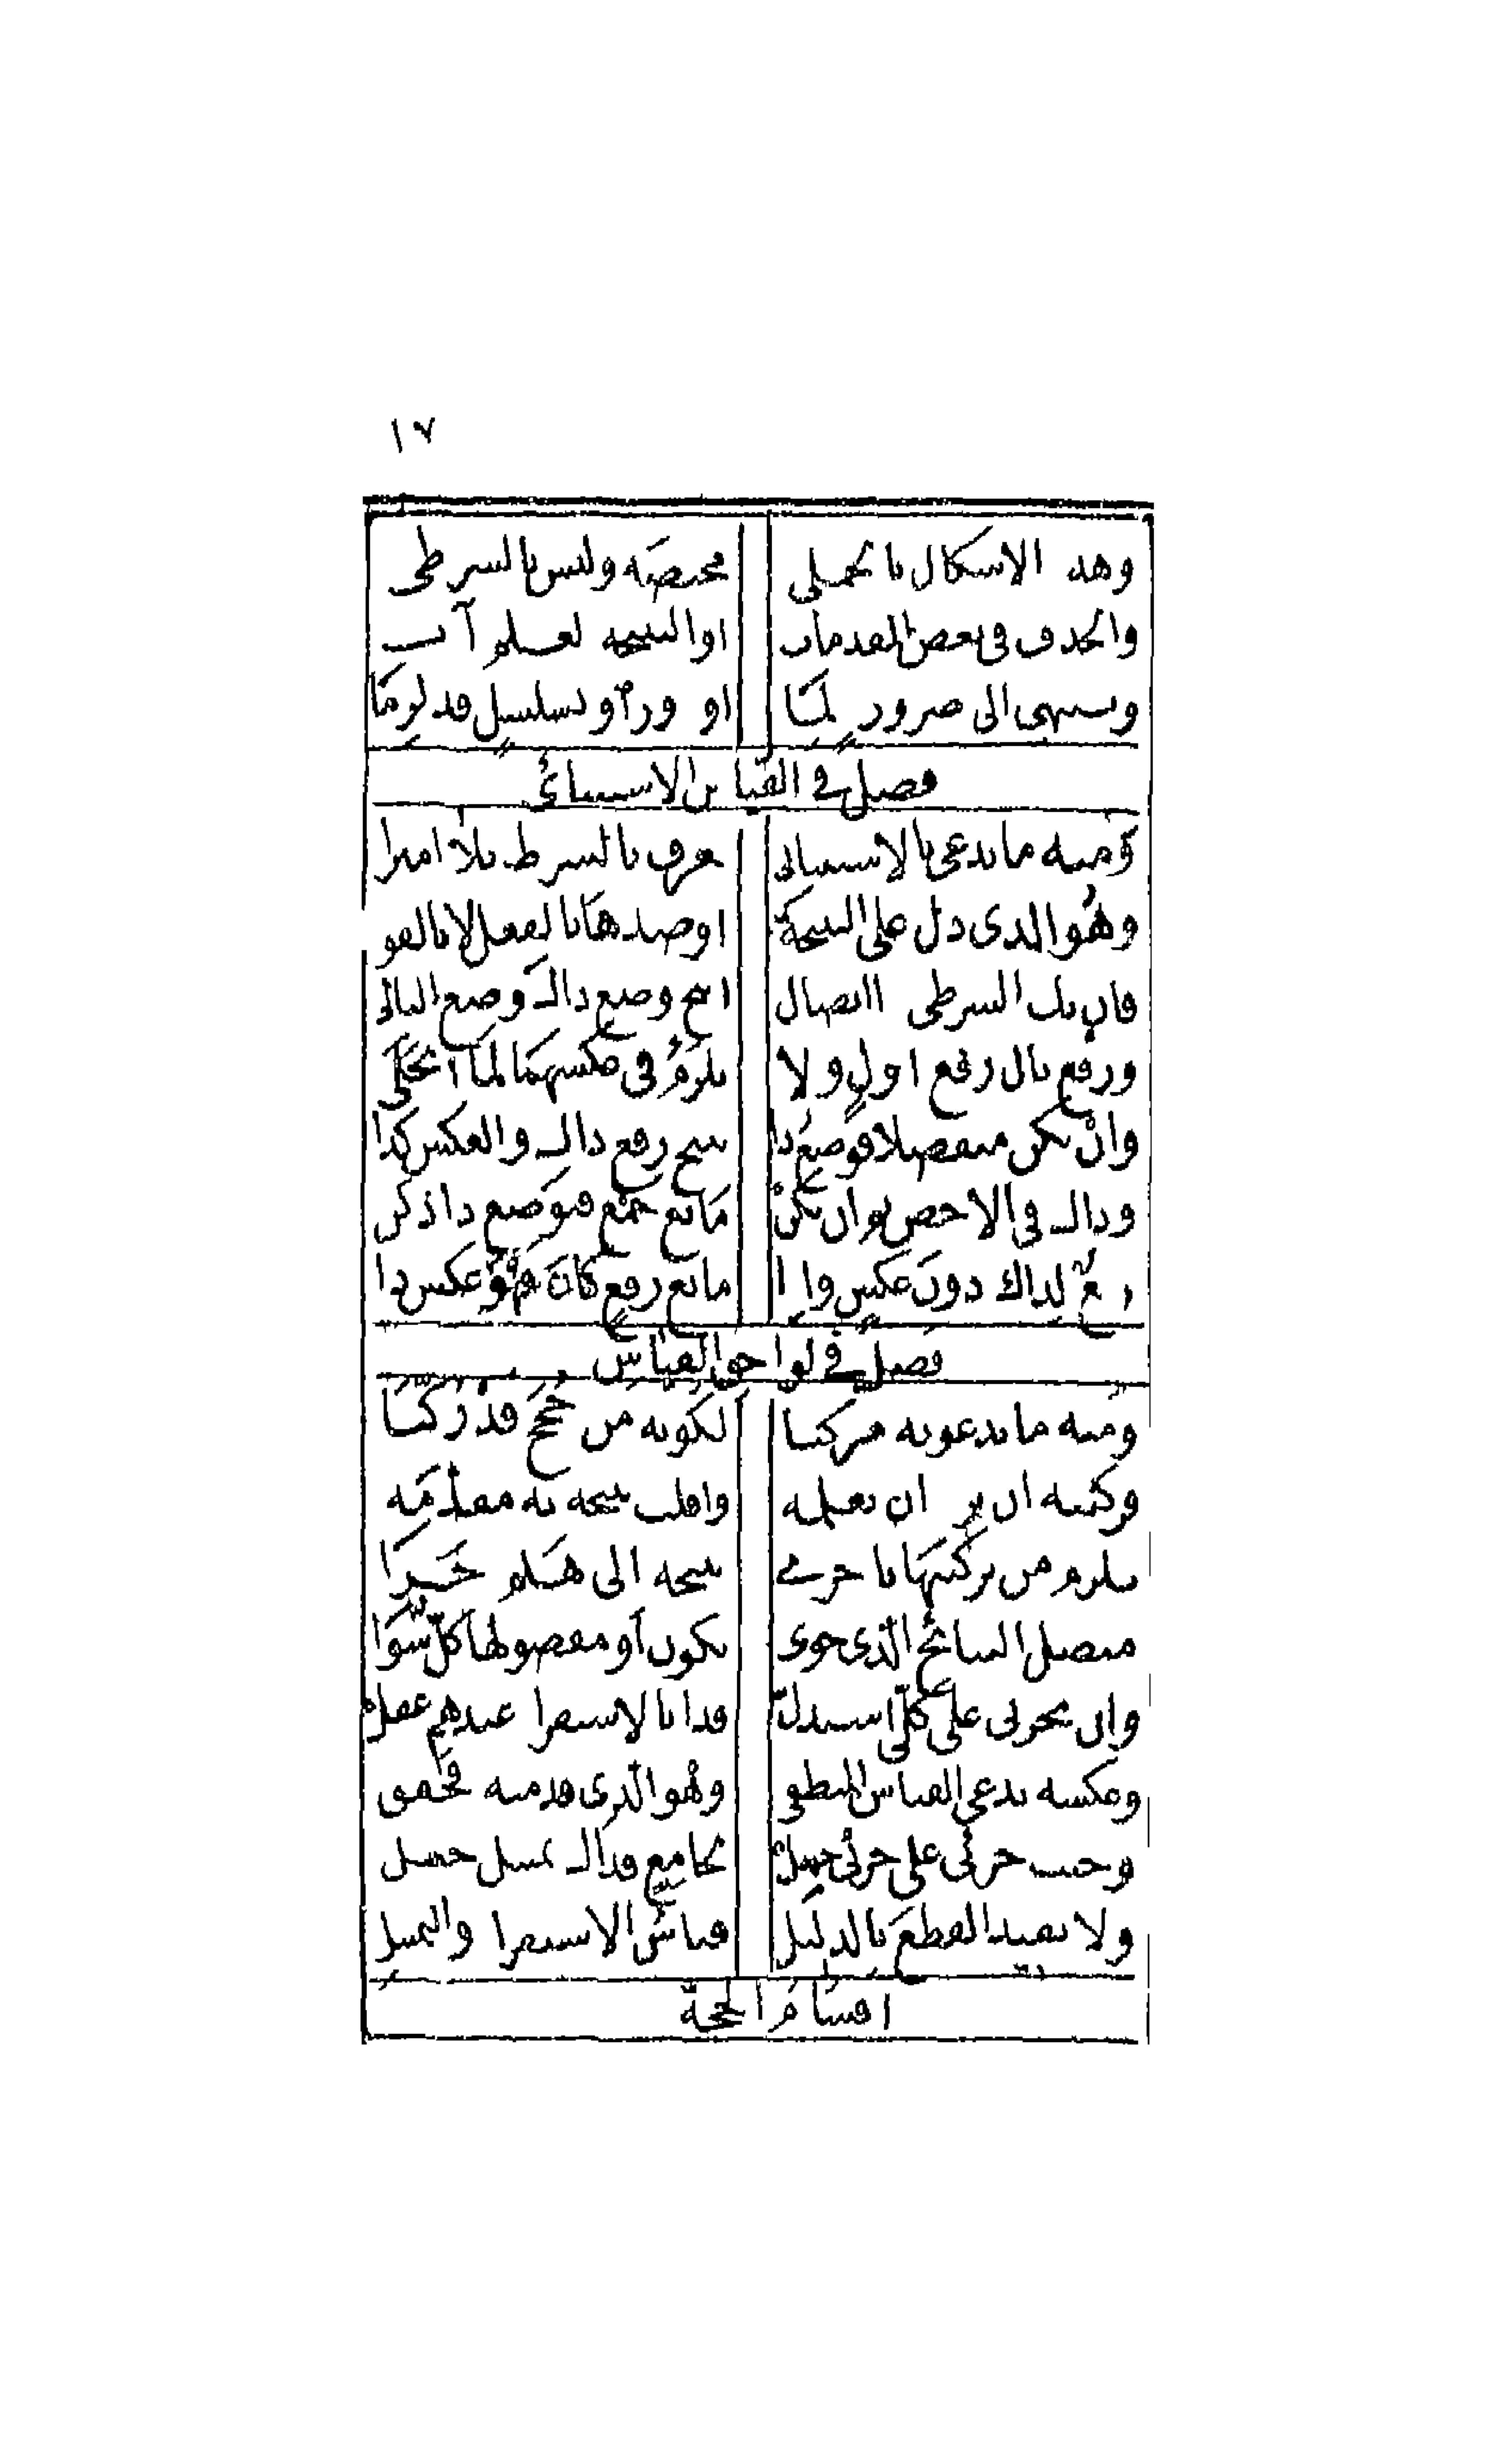 ١٧
وهذه الاشكال بالحملى مختصة وليس بالشرطى
والحذف فى بعض المقدمات او النتيجة لعلم آت
وتنتهى الى ضرورة لما او دور او تسلسل قد لزما
فصل في القياس الاستثنائي
ومنه ما يدعى بالاستثنائى يعرف بالشرط بلا امترا
وهو الذى دل على النتيجة او ضدها بالفعل لا بالقوة
فان يك الشرطى ذا اتصال انتج وضع ذاك وضع التالى
ورفع تال رفع اول ولا يلزم فى عكسهما لما انجلى
وان يكن منفصلا فوضع ذا ينتج رفع ذاك والعكس كذا
وذاك فى الاخص ثم ان يكن مانع جمع فبوضع ذا زكن
رفع لذاك دون عكس واذا مانع رفع كان فهو عكس ذا
فصل في لواحق القياس
ومنه ما يدعونه مركبا لكونه من حجج قد ركبا
فركبنه ان ترد ان تعلمه واقلب نتيجة به مقدمه
يلزم من تركيبها باخرى نتيجة الى هلم جرا
متصل النتائج الذى حوى يكون او مفصولها كل سوا
وان بجزئى على كلى استدل فذا بالاستقرا عندهم عقل
وعكسه يدعى القياس المنطقى وهو الذى قدمته فحقق
وحيث جزئى على جزئى حمل بجامع فذاك تمثيل جعل
ولا يفيد القطع بالدليل قياس الاستقرا والتمثيل
اقسام الحجة